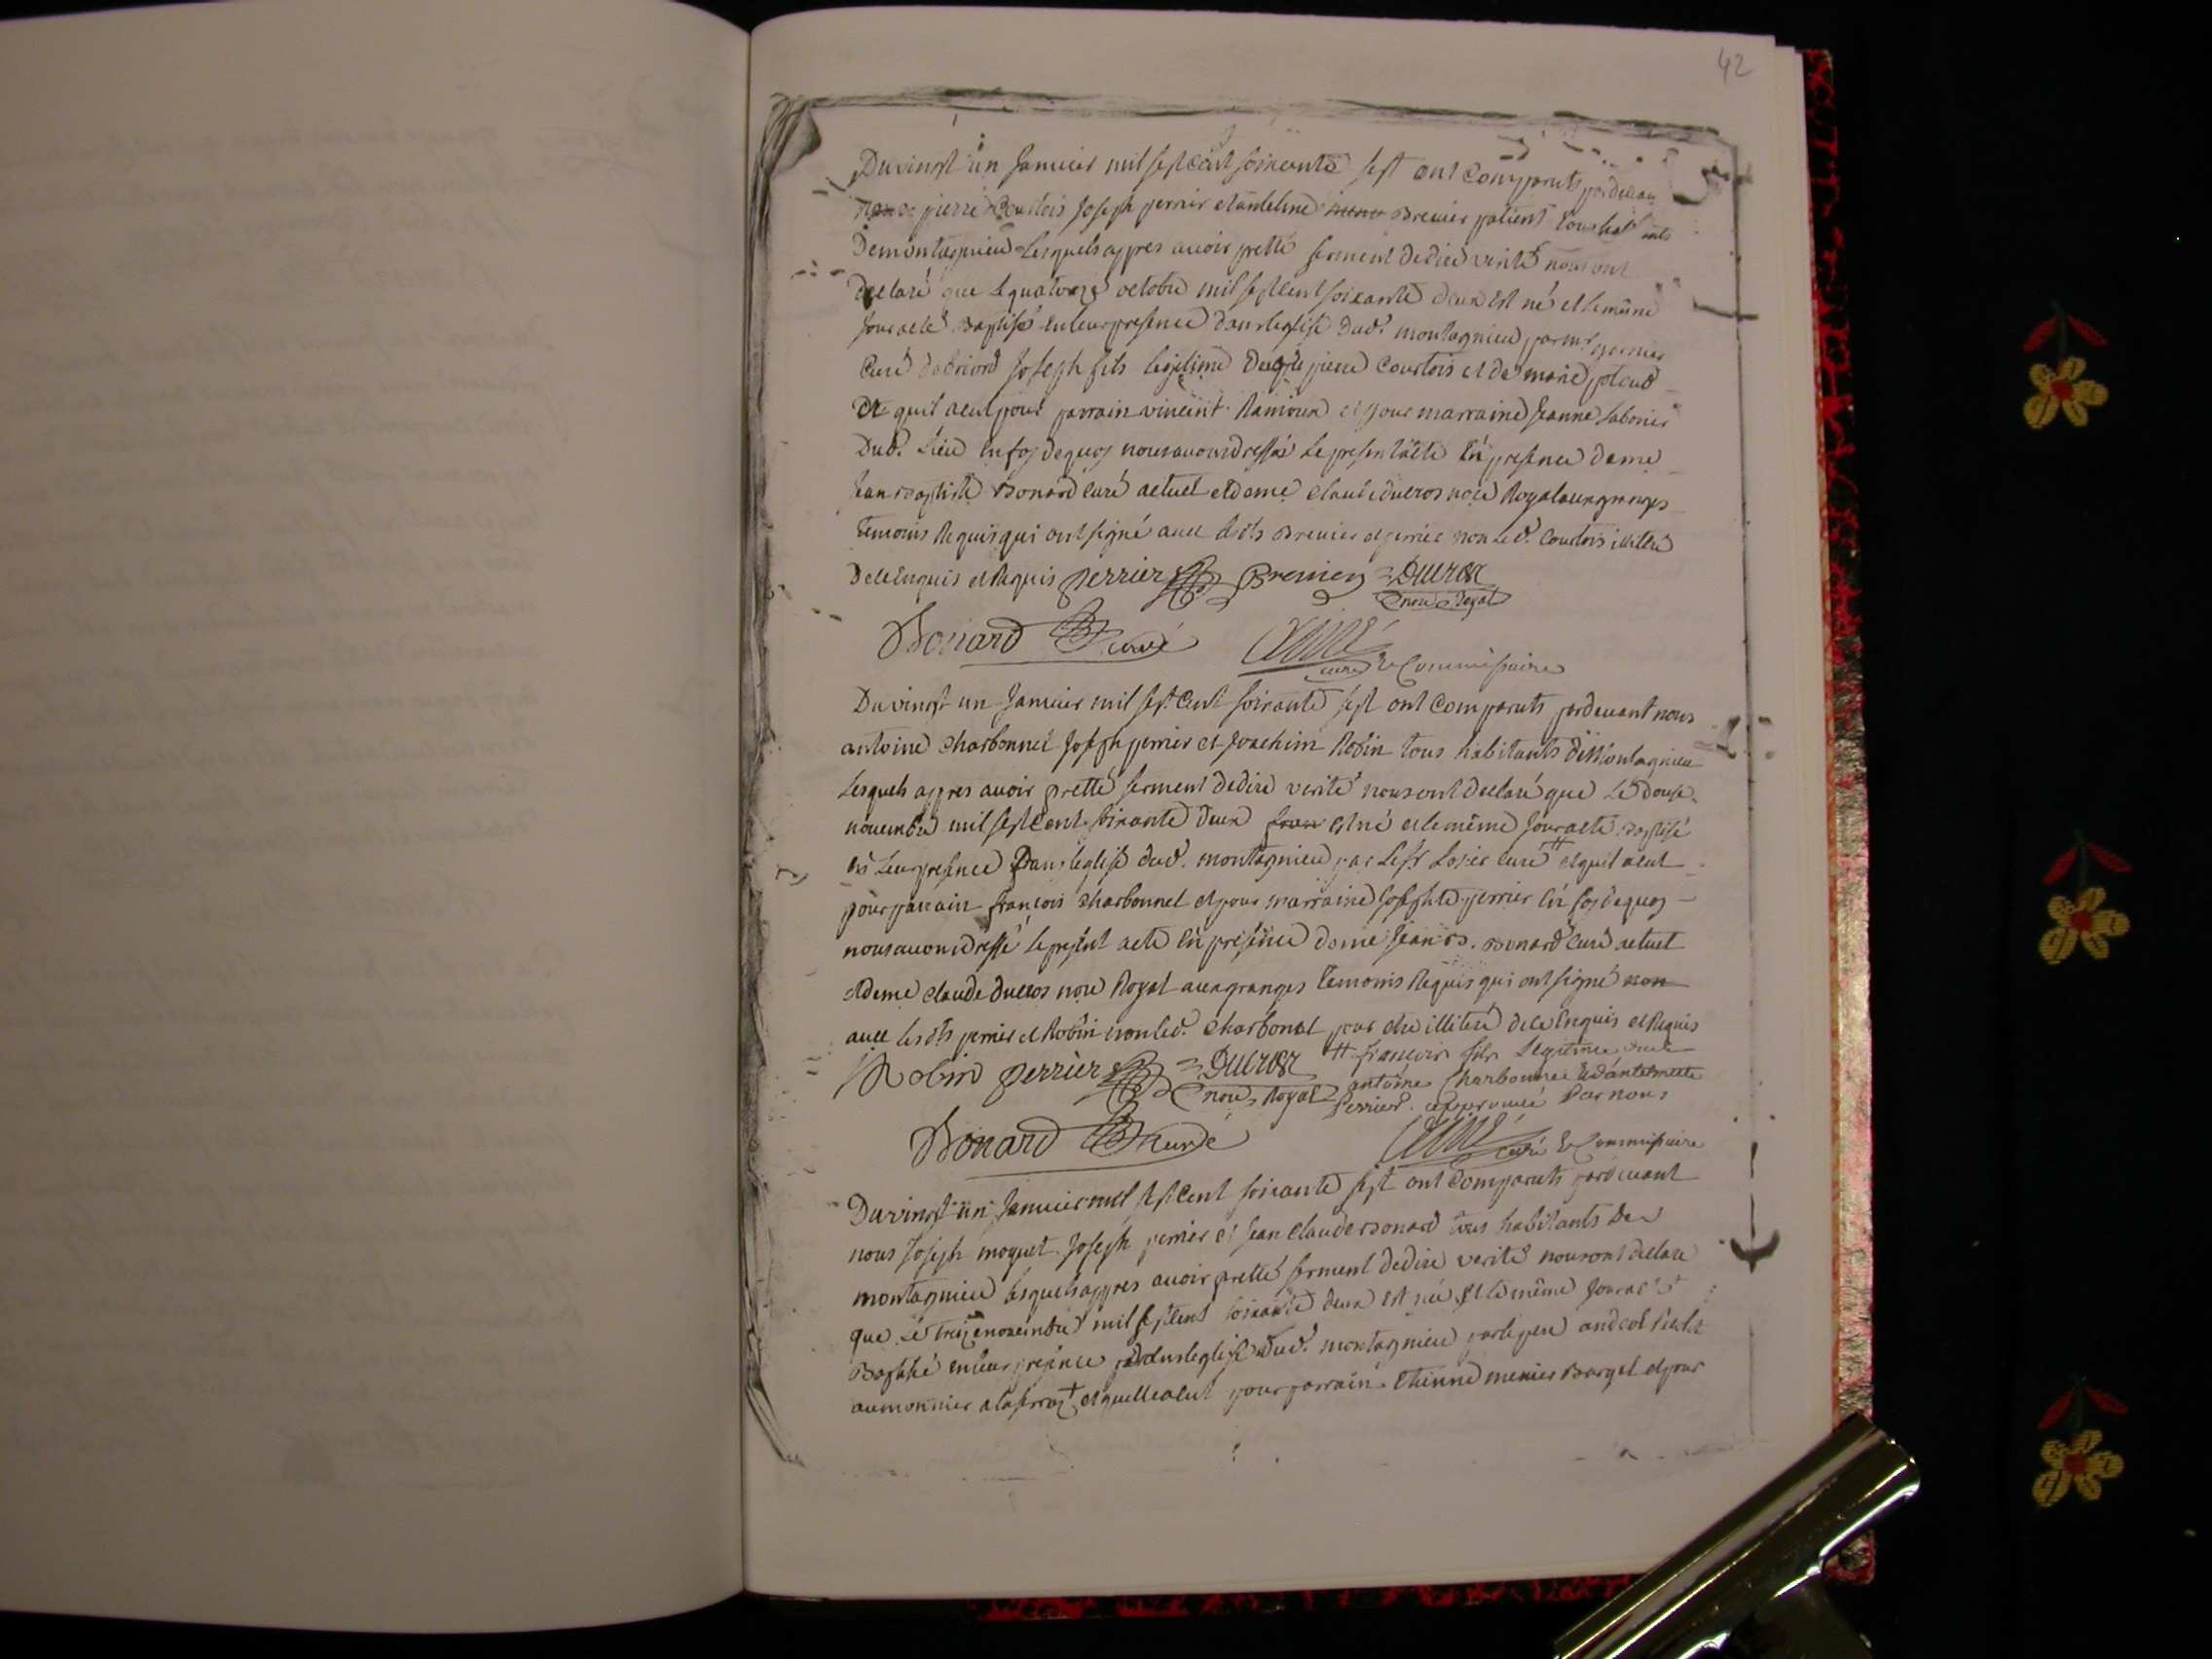 42
Du vingt un Janvier mil sept cent soixante sept ont comparuts pardevan
nous pierre Courtois Joseph perrier et antelme Brevier patient tous habitants
De montagnieu Lesquels appres avoir pretté serment de dire verité nous ont
declaré que Le quatorze octobre mil sept cent soixante deux est né et le même
Jour a eté Baptisé en leur presence dans leglise dud. montagnieu par mr perrier
Curé de briord Joseph fils legitime dudt pierre Courtois et de marie
et quil a eut pour parrain vincent Ramoux et pour marraine Jeanne Laborier
Dud. Lieu En foy de quoy nous avons dressés Le present acte En presence de me
Jean Baptiste Bonard curé actuel et de me Claude Ducros nore Royal aux granges
temoins Requis qui ont signé avec lesdts Brevier et perrier non Led. Courtois illitere
De ce Enquis et Requis perrier Brevier Ducros
nore Royal
Bonard curé
curé & Commissaire
Du vingt un Janvier mil sept Cent soixante sept ont comparuts pardevant nous
antoine charbonnet Joseph perrier et Joachim Robin tous habitants de Montagnieu
Lesquels appres avoir pretté serment de dire verité nous ont declaré que Le douse
novembre mil sept Cent soixante deux est né et le même Jour a eté Baptisé
en Leur presence Dans leglise dud. montagnieu par Le sr Losier curé # et quil a eut
pour parrain françois charbonnet et pour marraine Josephte perrier En foy de quoy
nous avons dressé le present acte En presence de me Jean B. Bonard curé actuel
et de me claude ducros nore Royal aux granges temoins Requis qui ont signé non
avec lesdts perrier et Robin non led. charbonet pour etre illiteré de ce Enquis et Requis
Robin perrier Ducros # françois fils Legitime dudt
nore Royal antoine Charbonnet et d'antelmette
perrier. approuvé Par nous
Bonard curé
curé & Commissaire
Du vingt un Janvier mil sept Cent soixante sept ont comparuts pardevant
nous Joseph moquet Joseph perrier et Jean claude Bonard tous habitants De
montagnieu lesquels appres avoir pretté serment de dire verité nous ont declaré
que Le treize novembre mil sept cent soixante deux est née et le même Jour a eté
Baptisé en leur presence dans leglise dud. montagnieu par le pere
aumonnier a la serraz + et quelle a eut pour parrain Etienne menier Burget et pour